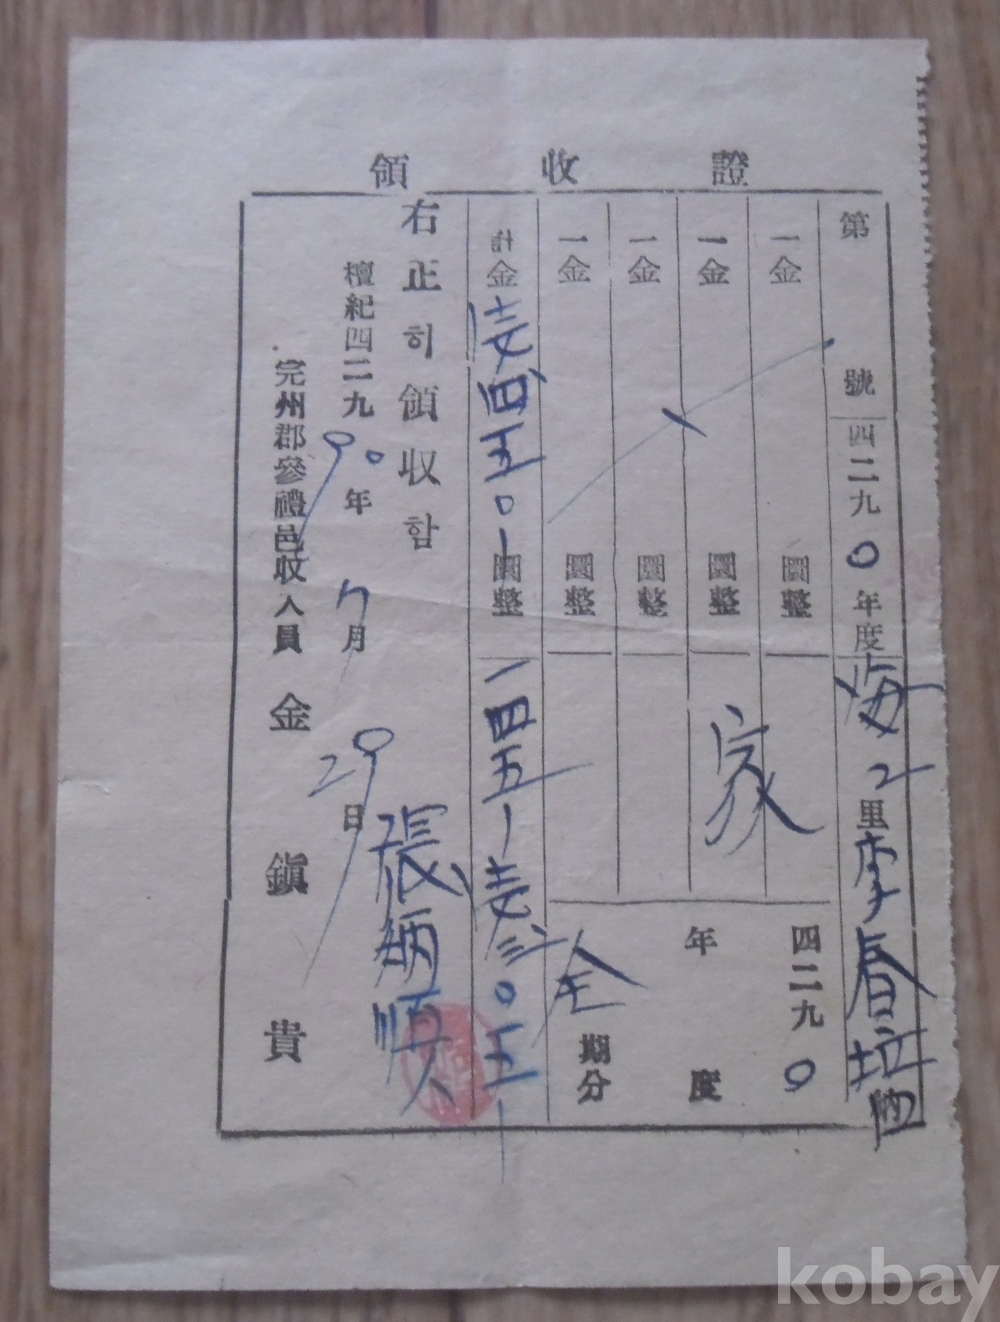 領收證
第 號 四二九0年度 海2里 李春培 納
一金 圜整
一金 圜整
家
一金 圜整
一金 圜整
四二九0
年度
全期分
金 壹四五0- 圜整 一四五- 壹三0五-
右正히領收함
檀紀四二九0年7月29日
張炳順
完州郡參禮邑收入員 金鎭貴
kobay